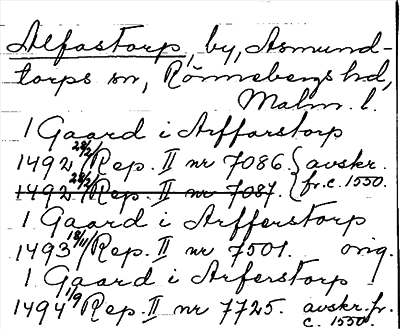 Alfastorp, by, Asmund-
torps sn, Rönnebergs hd,
Malm. l.
1 Gaard i Arffarstorp
1492 28/2 Rep. II nr 7086. } avskr.
1492 28/2 Rep. II nr 7087. } fr. c. 1550.
1 Gaard i Arfferstorp
1493 18/11 Rep. II nr 7501. orig.
1 Gaard i Arferstorp
1494 1/9 Rep. II nr 7725. avskr. fr.
c. 1550